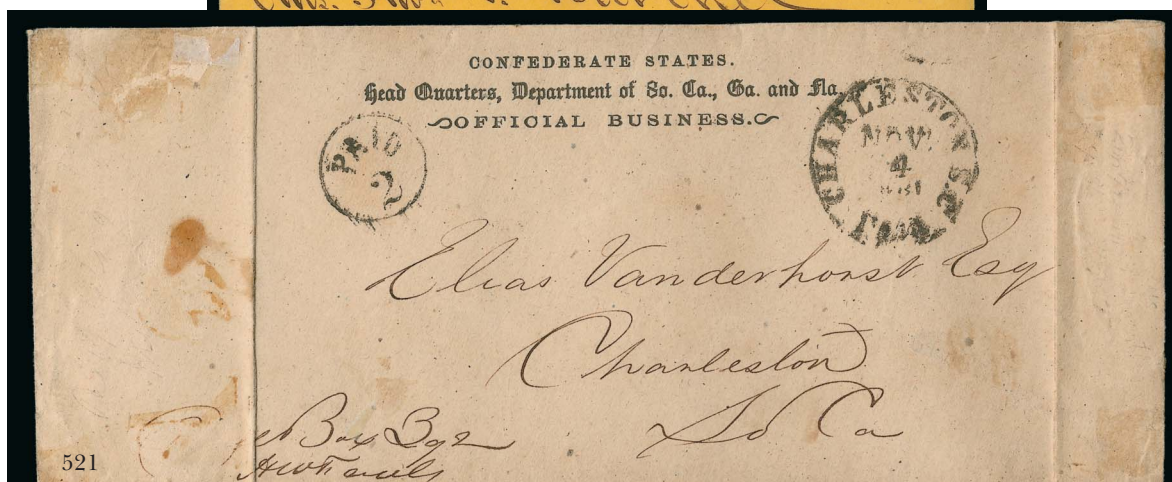 CONFEDERATE STATES.
Head Quarters, Department of So. Ca., Ga. and Fla.
OFFICIAL BUSINESS.
PAID
2
CHARLESTON S.C.
NOV.
4
Elias Vanderhorst Esq
Charleston
So Ca
Box
521